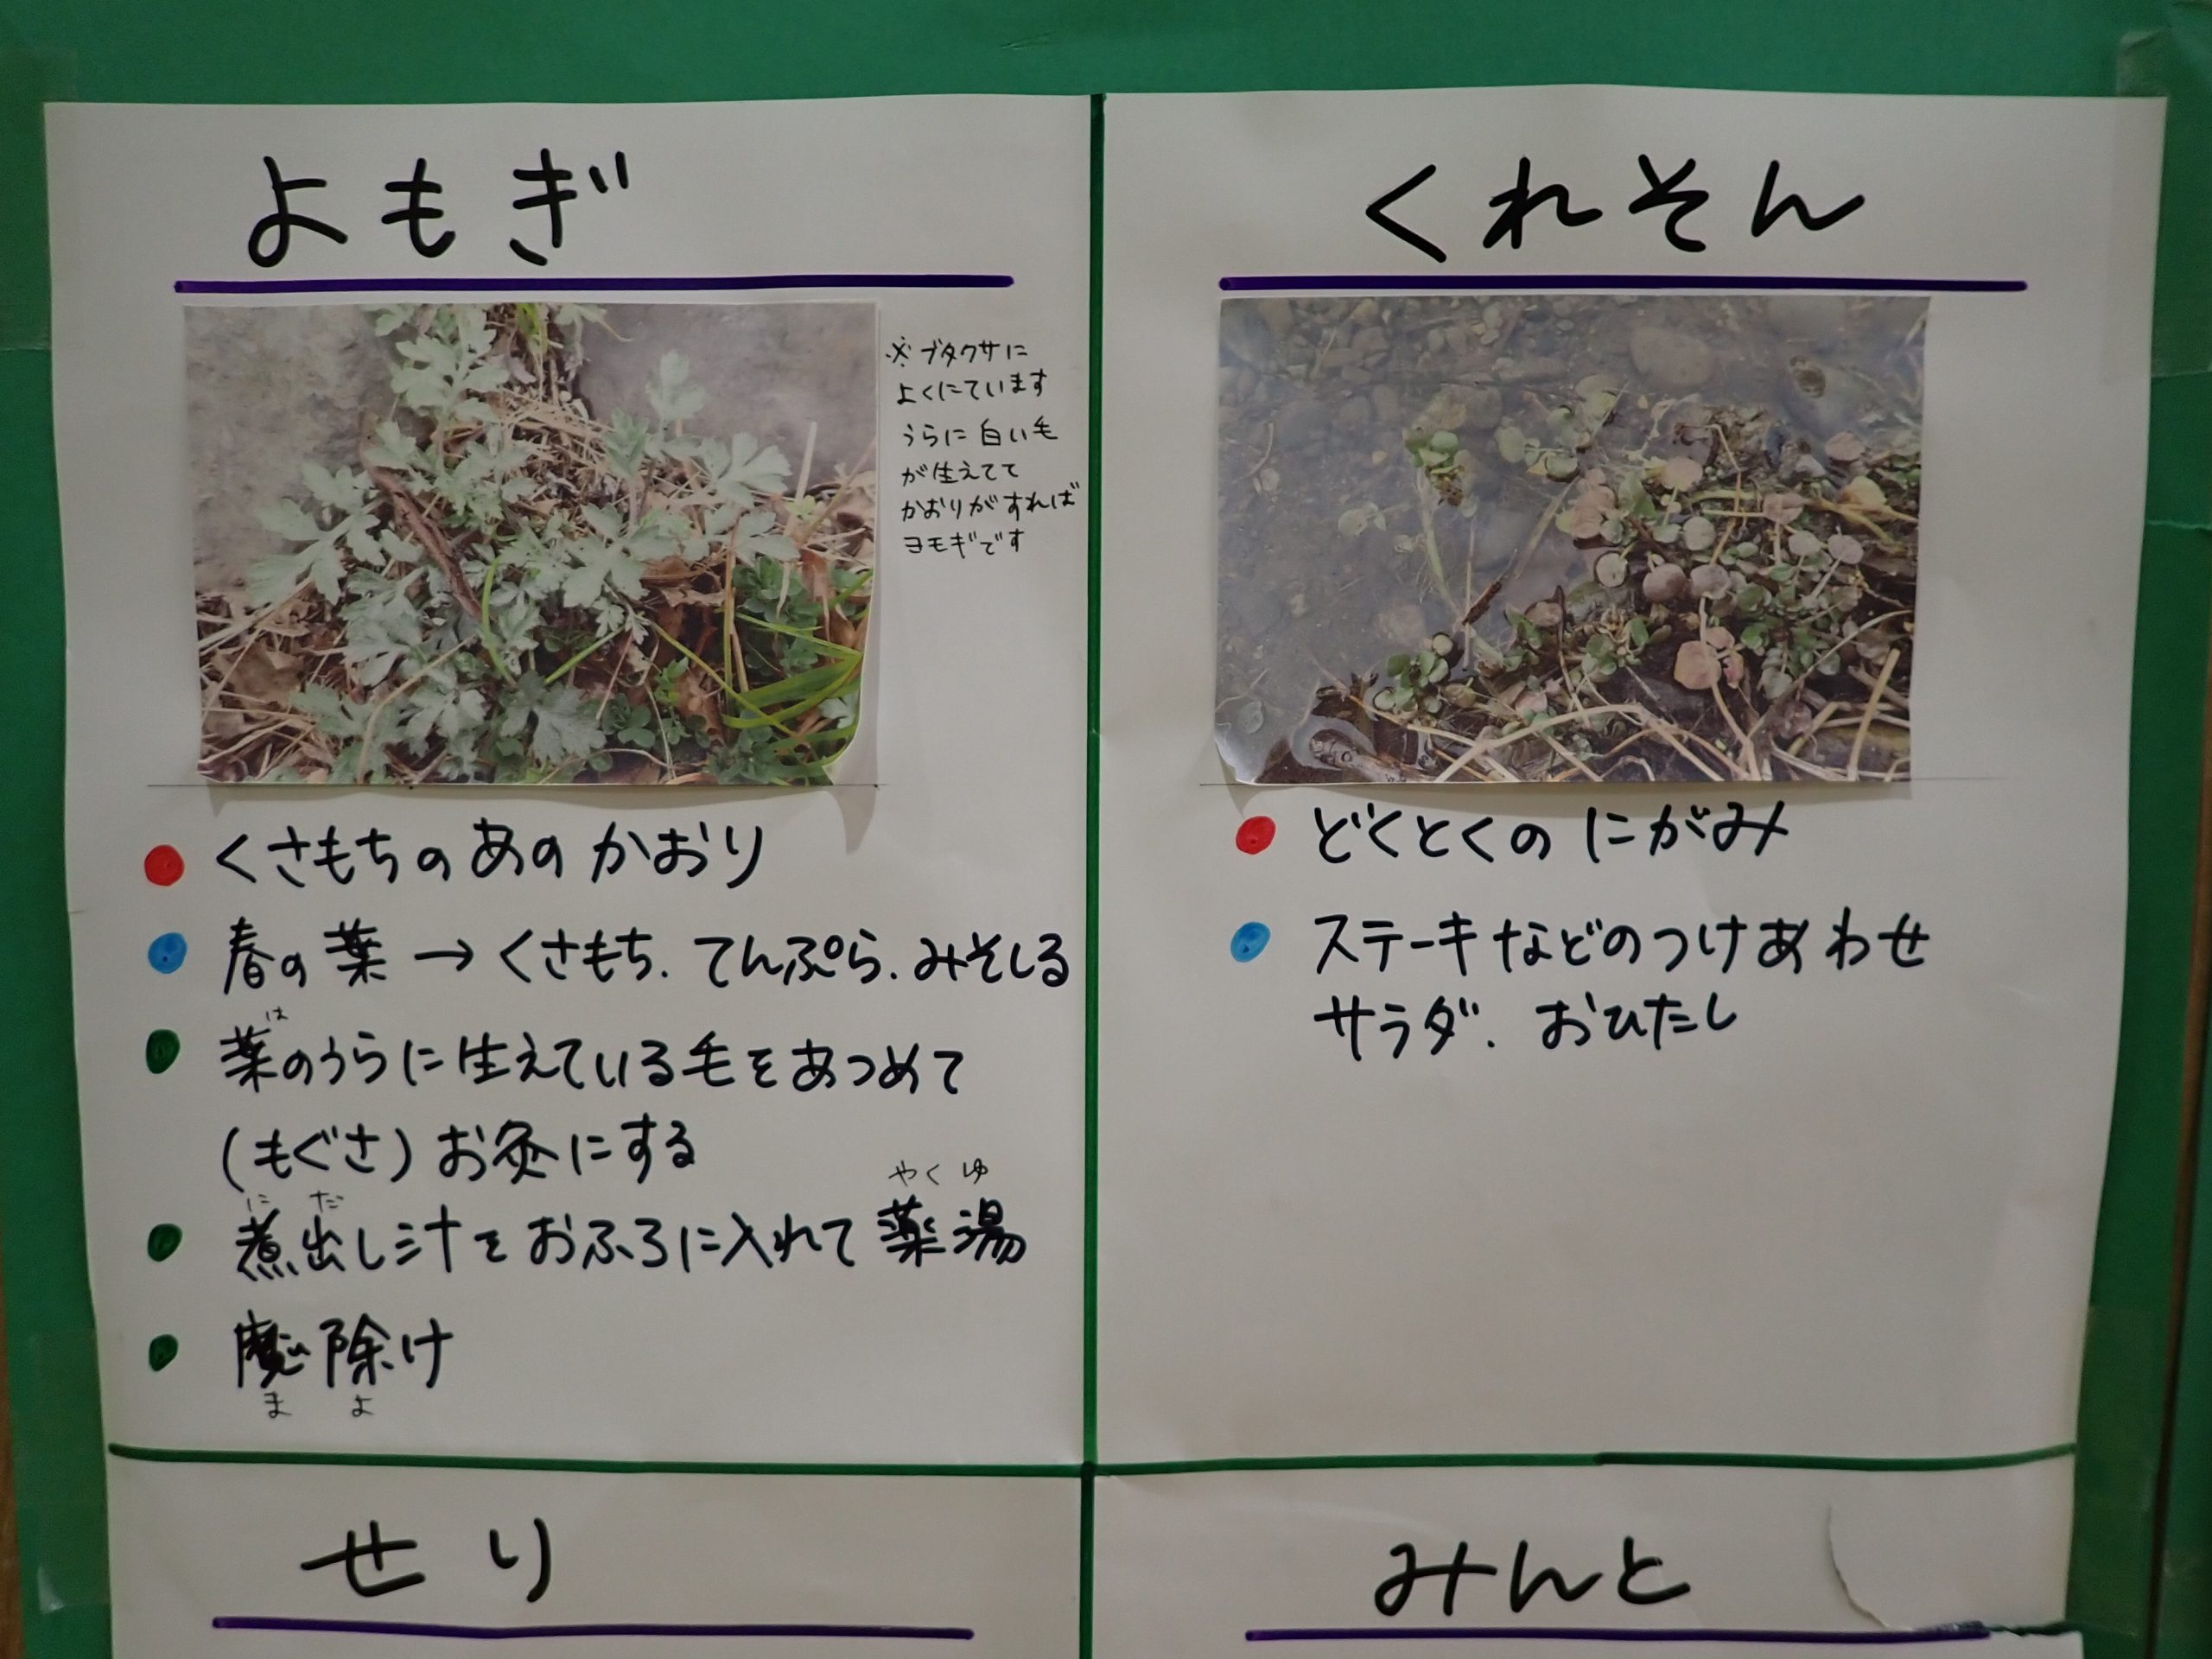 よもぎ
※ブタクサに
よくにています
うらに白い毛
が生えてて
かおりがすれば
ヨモギです
くさもちのあのかおり
春の葉→くさもち.てんぷら.みそしる
は
葉のうらに生えている毛をあつめて
(もぐさ)お灸にする
にだ やくゆ
煮出し汁をおふろに入れて薬湯
魔除け
まよ
くれそん
どくとくのにがみ
ステーキなどのつけあわせ
サラダ.おひたし
せり
みんと